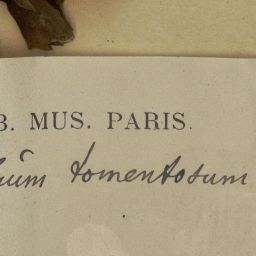 B. MUS. PARIS.
ium tomentosum